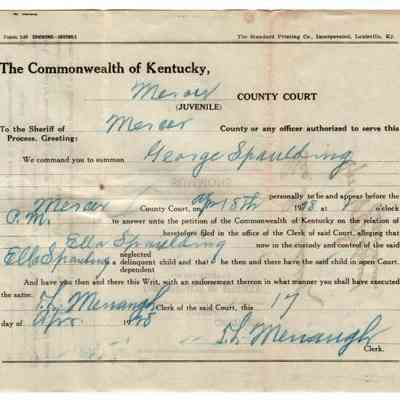 Form 140 SUMMONS—JUVENILE The Standard Printing Co., Incorporated, Louisville, Ky.
The Commonwealth of Kentucky,
Mercer COUNTY COURT
(JUVENILE)
To the Sheriff of Mercer County or any officer authorized to serve this
Process, Greeting:
We command you to summon George Spaulding
personally to be and appear before the
Mercer County Court, on Apr 18th 1928 at o'clock
P.M. to answer unto the petition of the Commonwealth of Kentucky on the relation of
heretofore filed in the office of the Clerk of said Court, alleging that
Ella Spaulding now in the custody and control of the said
neglected
Ella Spaulding a delinquent child and that he then and there have the said child in open Court.
dependent
And have you then and there this Writ, with an endorsement thereon in what manner you shall have executed
the same. T.H. Menaugh Clerk of the said Court, this 17
day of Apr. 1928
T.H. Menaugh
Clerk.